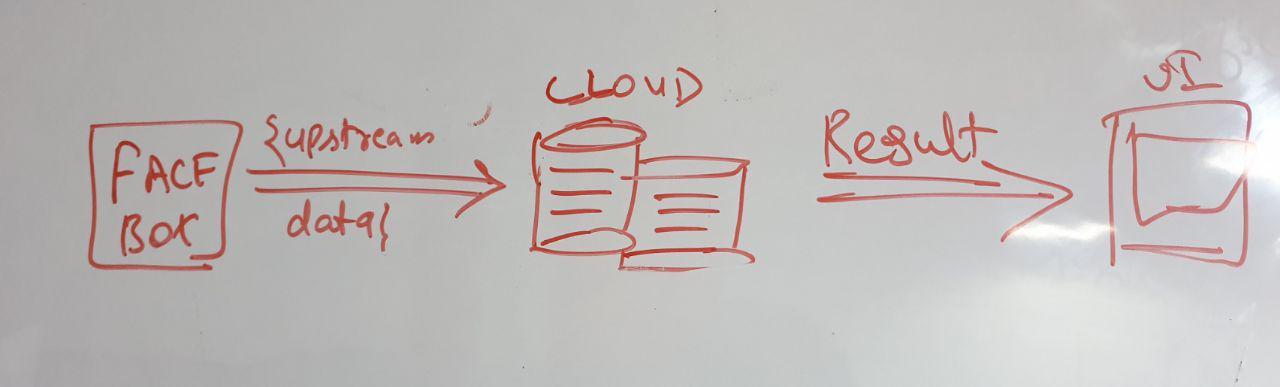 FACE
BOX
{upstream
data}
CLOUD
Result
UI